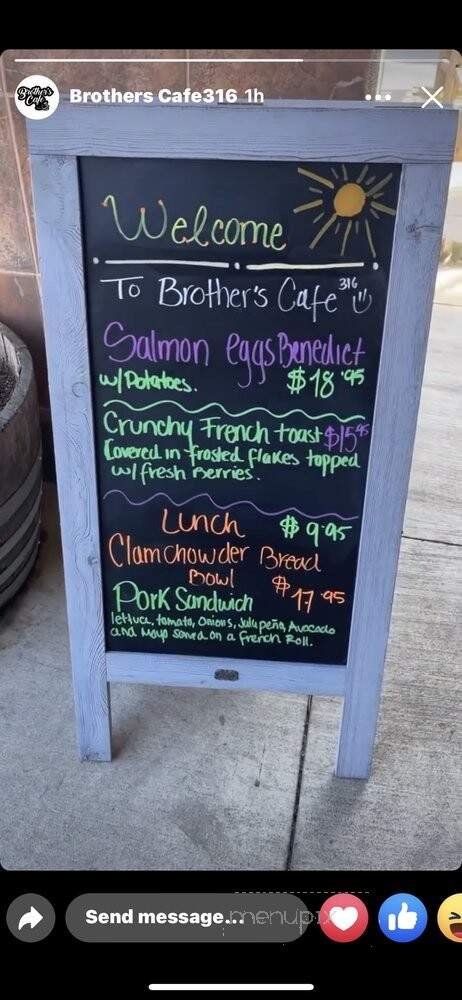 Brother's Cafe
Brothers Cafe316 1h
Welcome
To Brother's Cafe 316
Salmon eggs Benedict
w/Potatoes. $18.95
Crunchy French toast $15.95
Covered in frosted flakes topped
w/fresh Berries.
Lunch $9.95
Clam chowder Bread
Bowl
Pork Sandwich $17.95
lettuce, tomato, Onions, Jalapeño, Avocado
and Mayo served on a French Roll.
Send message...
menupix